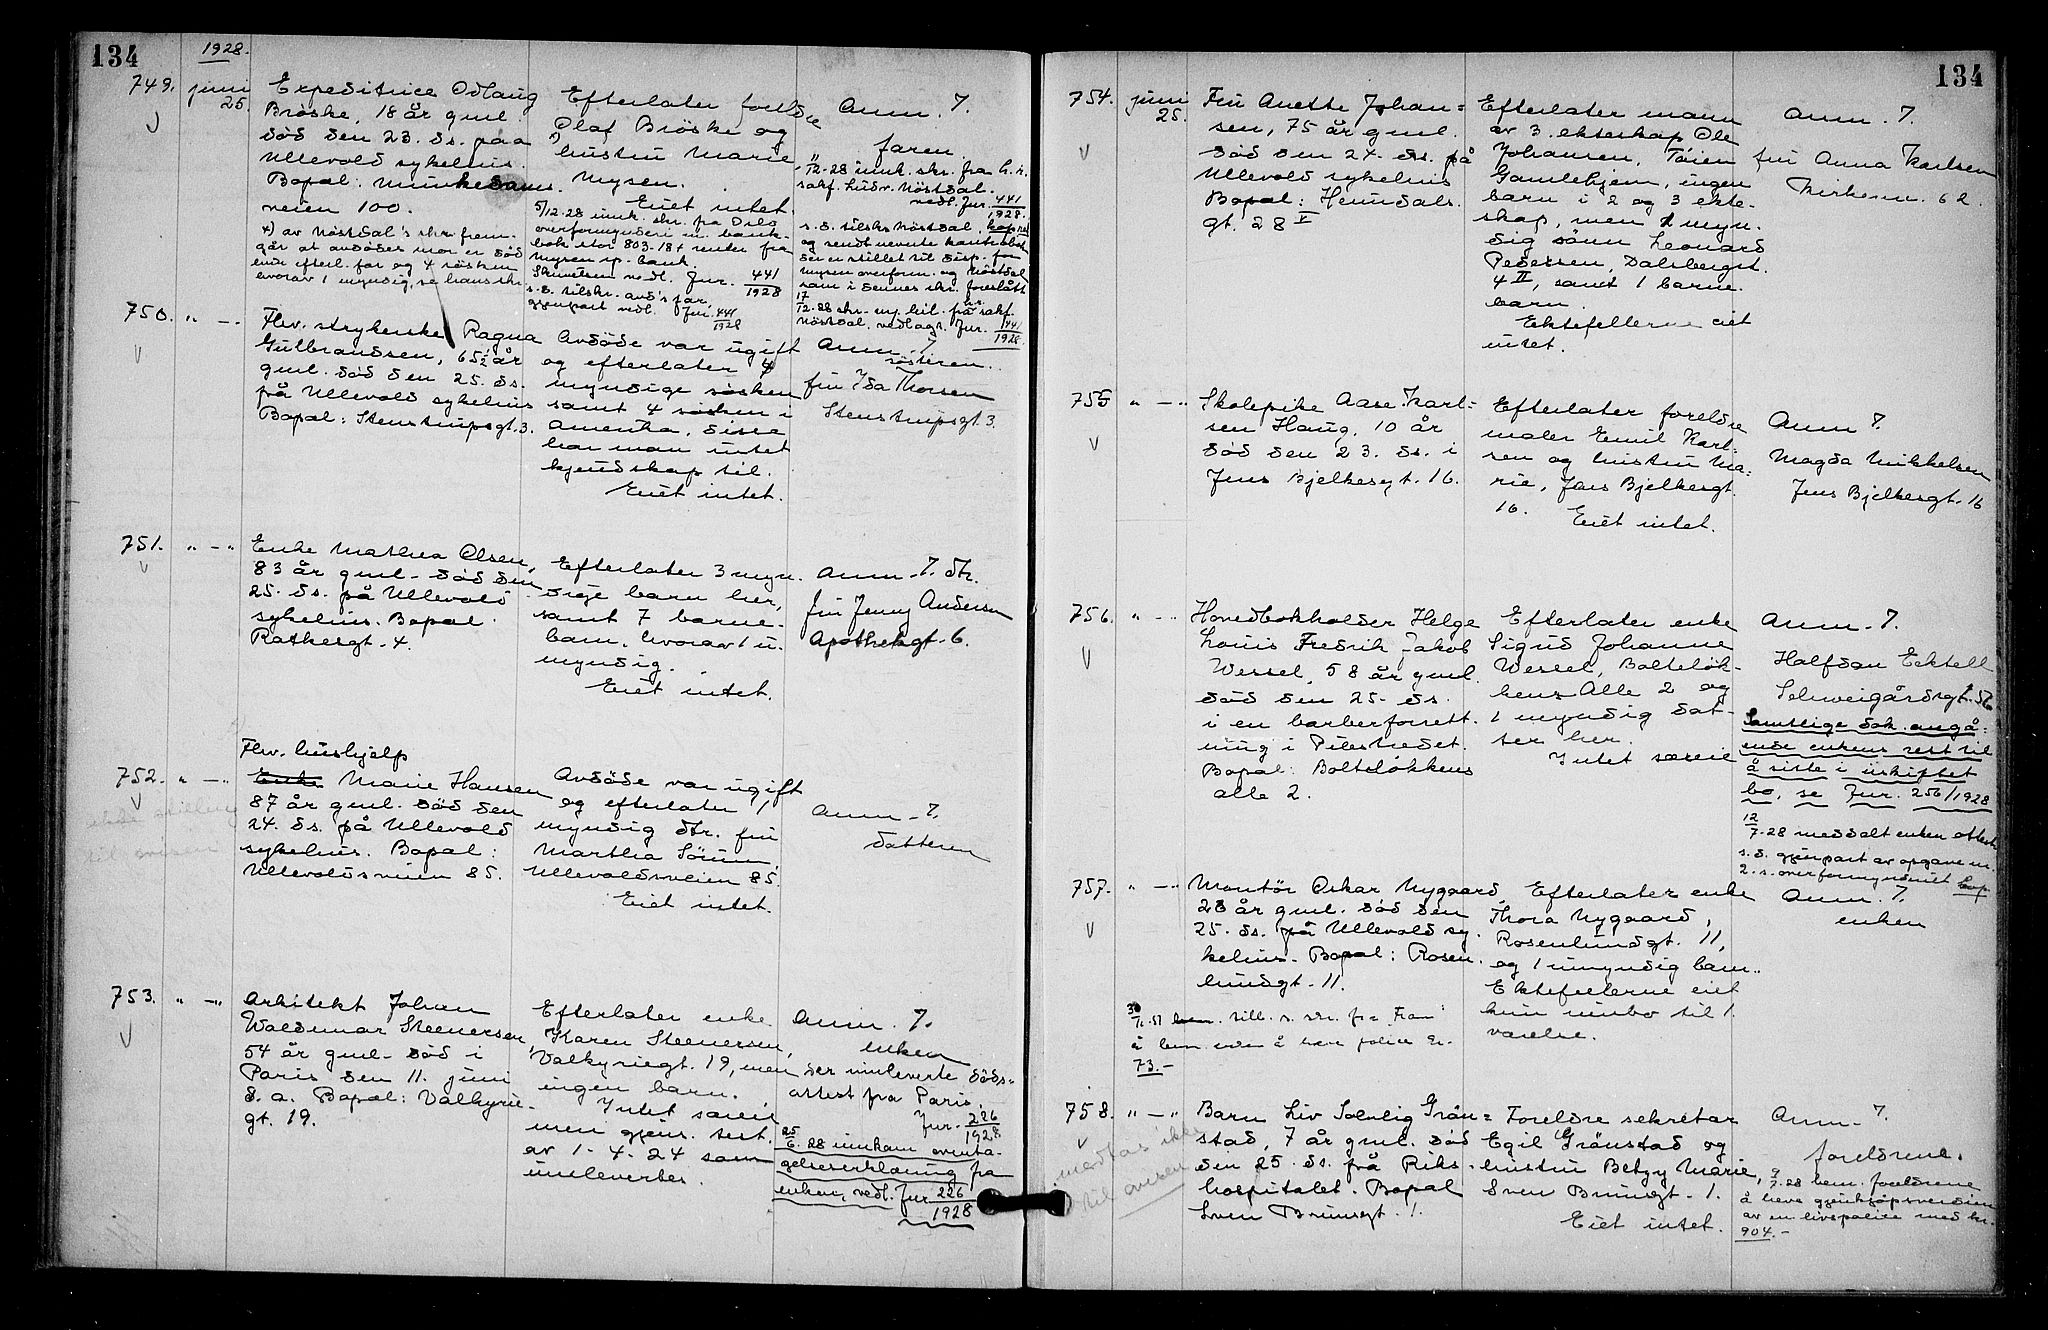 134
1928.
749. juni 25.
Expeditrice Odlaug
Bröske, 18 år gml.
död den 23. ds. paa
Ullevold sykehus.
Bopæl: Munkedams
veien 100.
x) av Nöstdal's skr. frem-
går at avdödes mor er död
efterl. far og 4 sösken
hvorav 1 myndig, se hans skr.
Efterlater foreldre
Olaf Bröske og
x) hustru Marie
Mysen.
Eiet intet.
5/12-28 innk. skr. fra Oslo
overformynderi m. bank-
bok stor 803-18 + renter fra
Mysen sp. bank.
vedl. Jur. 441/1928
s. d. tilskr. avd's far,
gjenpart vedl. Jur. 441/1928
Anm. 7.
faren.
/12-28 innk. skr. fra h.r.
sakf. Ludv. Nöstdal.
vedl. Jur. 441/1928.
s. d. tilskr. Nöstdal, kop.
og sendt nevnte kontrabok
der er stillet til disp. for
Mysen overform. og Nöstdal
som i dennes skr. foreslått
17/12-28 skr. fra h.r. sakf.
Nöstdal, vedlagt Jur. 441/1928
750. " — "
Fhv. strykerske Ragna
Gulbrandsen, 65½ år
gml. död den 25. ds.
på Ullevold sykehus
Bopæl: Stenstrupsgt. 3.
Avdöde var ugift
og efterlater 4
myndige sösken
samt 4 sösken i
Amerika, disse
har man intet
kjendskap til.
Eiet intet.
Anm. 7
sösteren.
fru Ida Thorsen
Stenstrupsgt. 3.
751. " — "
Enke Mathea Olsen,
83 år gml. död den
25. ds. på Ullevold
sykehus. Bopæl
Rathkesgt. 4.
Efterlater 3 myn-
dige barn her,
samt 7 barne-
barn, hvorav 1 u-
myndig.
Eiet intet.
Anm. 7. dtr.
fru Jenny Andersen
Apothekgt. 6.
752. " — "
Fhv. hushjelp
Enke Marie Hansen
87 år gml. död den
24. ds. på Ullevold
sykehus. Bopæl:
Ullevoldsveien 85.
Avdöde var ugift
og efterlater 1
myndig dtr. fru
Martha Sörum,
Ullevoldsveien 85.
Eiet intet.
Anm. 7.
datteren
753. " — "
Arkitekt Johan
Waldemar Steenersen
54 år gml. död i
Paris den 11. juni
d. a. Bopæl: Valkyrie-
gt. 19.
Efterlater enke
Karen Steenersen,
Valkyriegt. 19, men
ingen barn.
Intet særeie
men gjens. test.
av 1-4-24 som
innleveres.
Anm. 7.
enken
der innleverte döds-
attest fra Paris.
Jur. 226/1928
25/6. 28 innkom overta-
gelseserklæring fra
enken, vedl. Jur 226/1928
134
754. juni 25.
Fru Anette Johan-
sen, 75 år gml.
död den 24. ds. på
Ullevold sykehus
Bopæl: Heimdals-
gt. 28 V
Efterlater mann
av 3. ekteskap Ole
Johansen, Töien
Gamlehjem, ingen
barn i 2 og 3 ekte-
skap, men 1 myn-
dig sönn Leonard
Pedersen, Dalsbergst.
4 II, samt 1 barne-
barn.
Ektefellerne eiet
intet.
Anm. 7.
fru Anna Karlsen
Kirkevn. 62.
755 " — "
Skolepike Aase Karl-
sen Haug, 10 år
död den 23. ds. i
Jens Bjelkesgt. 16.
Efterlater foreldre
maler Emil Karl-
sen og hustru Ma-
rie, Jens Bjelkesgt.
16. Eiet intet.
Anm 7.
Magda Mikkelsen
Jens Bjelkesgt. 16
756. " — "
Hovedbokholder Helge
Louis Fredrik Jakob
Wessel, 58 år gml.
död den 25. ds.
i en barberforrett-
ning i Pilestredet.
Bopæl: Boltelökkens
alle 2.
Efterlater enke
Sigrid Johanne
Wessel, Boltelök-
kens Alle 2 og
1 myndig dat-
ter her.
Intet særeie
Anm. 7.
Halfdan
Schweigårdsgt. 56
Samtlige dok. angå-
ende enkens rett til
å sitte i uskiftet
bo, se Jur. 256/1928
12/7-28 meddelt enken attest
s. d. gjenpart av opgave m.
2. s. overformynderiet kop
757. " — "
Montör Oskar Nygaard,
28 år gml. död den
25. ds. på Ullevold sy-
kehus. Bopæl: Rosen-
lundgt. 11.
Efterlater enke
Thora Nygaard,
Rosenlundgt. 11,
og 1 umyndig barn.
Ektefellerne eiet
kun innbo til 1
værelse.
Anm. 7.
enken
73.-
758. " — "
medtas ikke
til avisen
Barn Liv Solveig Grön-
stad, 7 år gml. död
den 25. ds. på Riks-
hospitalet. Bopæl
Sven Brunsgt. 1.
Foreldre sekretær
Egil Grönstad og
hustru Betzy Marie,
Sven Brunsgt. 1.
Eiet intet.
Anm. 7.
foreldrene.
9/7-28 bem. foreldrene
å heve gjenkjöpsverdien
av en livspolice med kr.
904.-